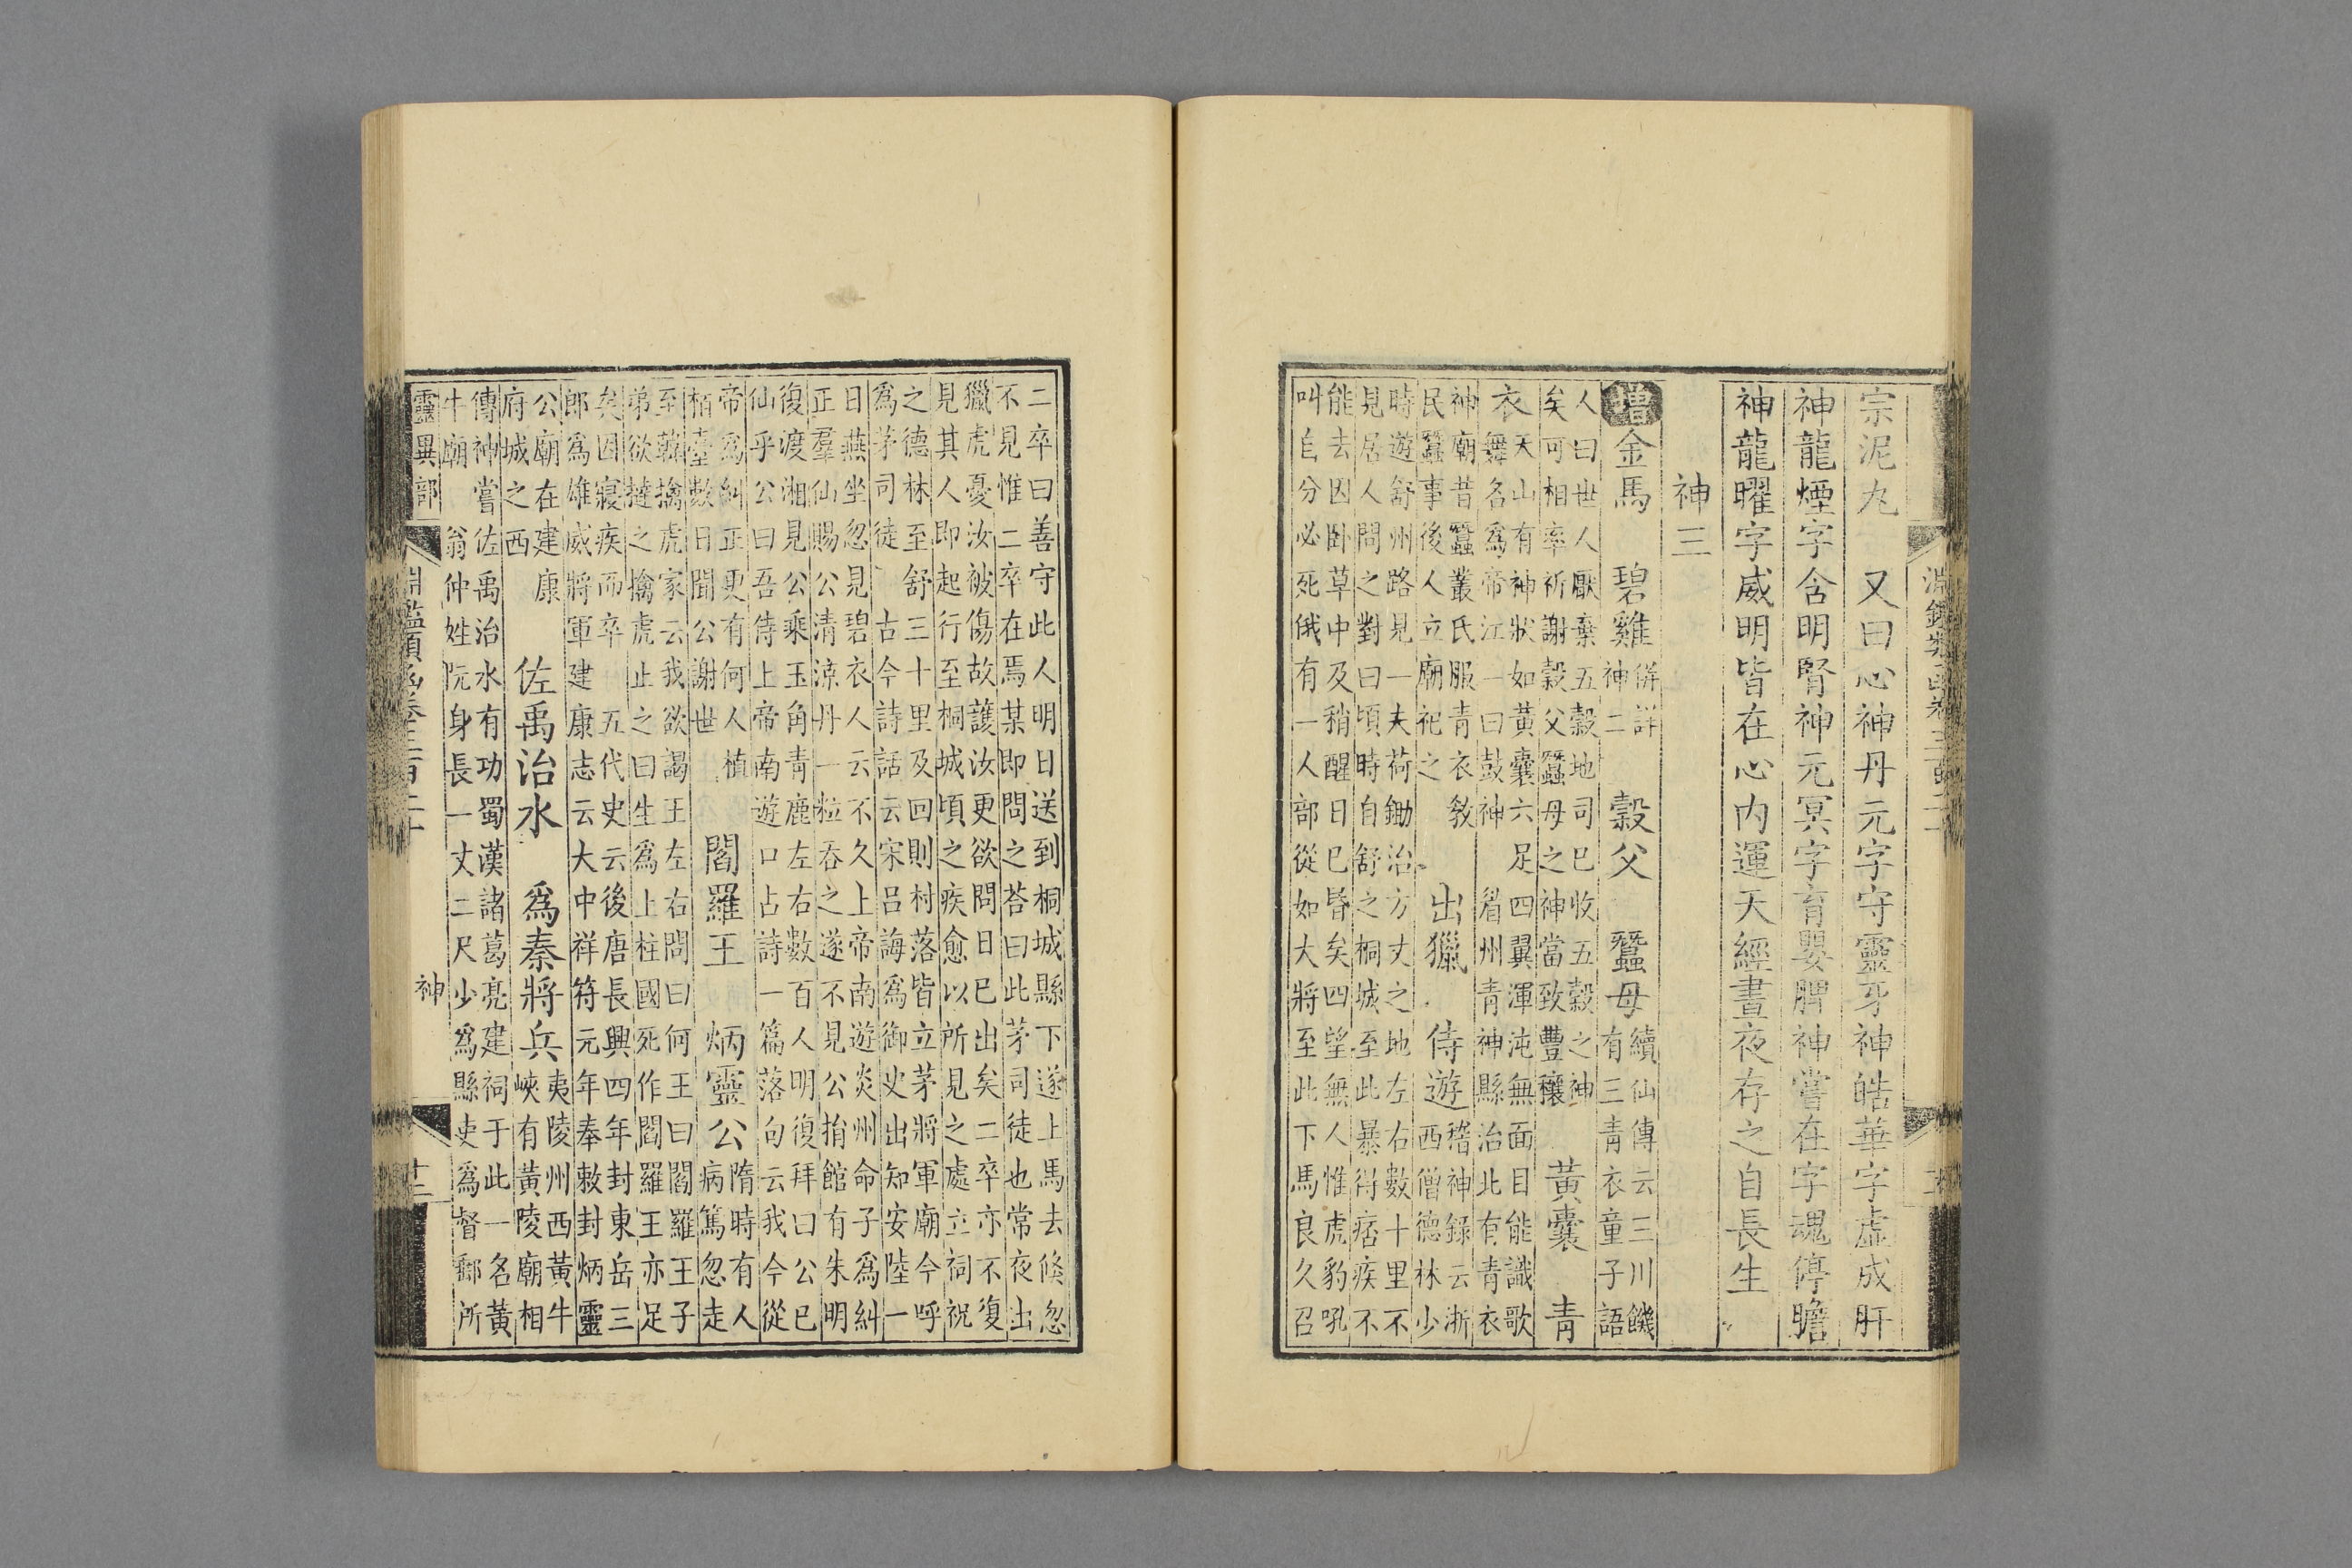 宗泥丸　又曰心神丹元字守靈牙神皓華字虛成肝
神龍煙字含明腎神元冥字育嬰脾神嘗在字魂停膽
神龍曜字威明皆在心内運天經晝夜存之自長生
神三
增金馬　碧雞併詳神二　穀父　蠶母續仙傳云三川饑有三青衣童子語
人曰世人厭棄五穀地司已收五穀之神
矣可相率祈謝穀父蠶母之神當致豐穰　黃囊　青
衣天山有神狀如黃囊六足四翼渾沌無面目能識歌
舞名爲帝江一曰鼓神　眉州青神縣治北有青衣
神廟昔蠶叢氏服青衣敎
民蠶事後人立廟祀之　出獵　侍遊稽神錄云浙西僧德林少
時遊舒州路見一夫荷鋤治方丈之地左右數十里不
見居人問之對曰頃時自舒之桐城至此暴得痁疾不
能去因卧草中及稍醒日已昏矣四望無人惟虎豹吼
叫自分必死俄有一人部從如大將至此下馬良久召
二卒曰善守此人明日送到桐城縣下遂上馬去倏忽
不見惟二卒在焉某即問之荅曰此茅司徒也常夜出
獵虎憂汝被傷故護汝更欲問日已出矣二卒亦不復
見其人即起行至桐城頃之疾愈以所見之處立祠祝
之德林至舒三十里及回則村落皆立茅將軍廟今呼
爲茅司徒　古今詩話云宋呂誨爲御史出知安陸一
日燕坐忽見碧衣人云不久上帝南遊炎州命子爲糾
正羣仙賜公清涼丹一粒吞之遂不見公捐館有朱明
復渡湘見公乘玉角青鹿左右數百人明復拜曰公已
仙乎公曰吾侍上帝南遊口占詩一篇落句云我今從
帝爲糾正更有何人植
栢臺數日聞公謝世　閻羅王　炳靈公隋時有人病篤忽走
至韓擒虎家云我欲謁王左右問曰何王曰閻羅王子
弟欲撻之擒虎止之曰生爲上柱國死作閻羅王亦足
矣因寢疾而卒　五代史云後唐長興四年封東岳三
郎爲雄威將軍建康志云大中祥符元年奉敕封炳靈
公廟在建康
府城之西　佐禹治水　爲秦將兵夷陵州西黃牛峽有黃陵廟相
傳神嘗佐禹治水有功蜀漢諸葛亮建祠于此一名黃
牛廟　翁仲姓阮身長一丈二尺少爲縣吏爲督郵所
靈異部　淵鑑類函卷三百二十　神　十三